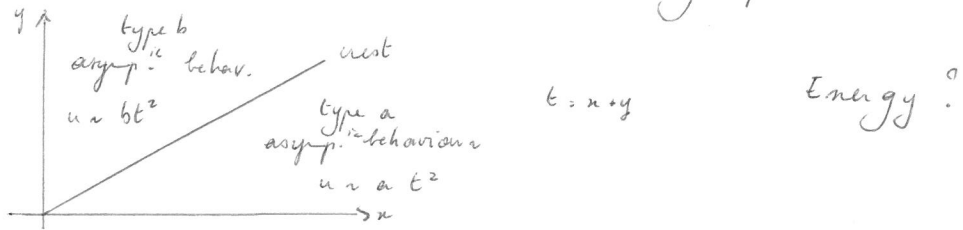 y
type b
asymp.ic behav.
crest
u ~ bt²
type a
asymp.ic behaviour
u ~ a t²
x
t = x + y
Energy ?